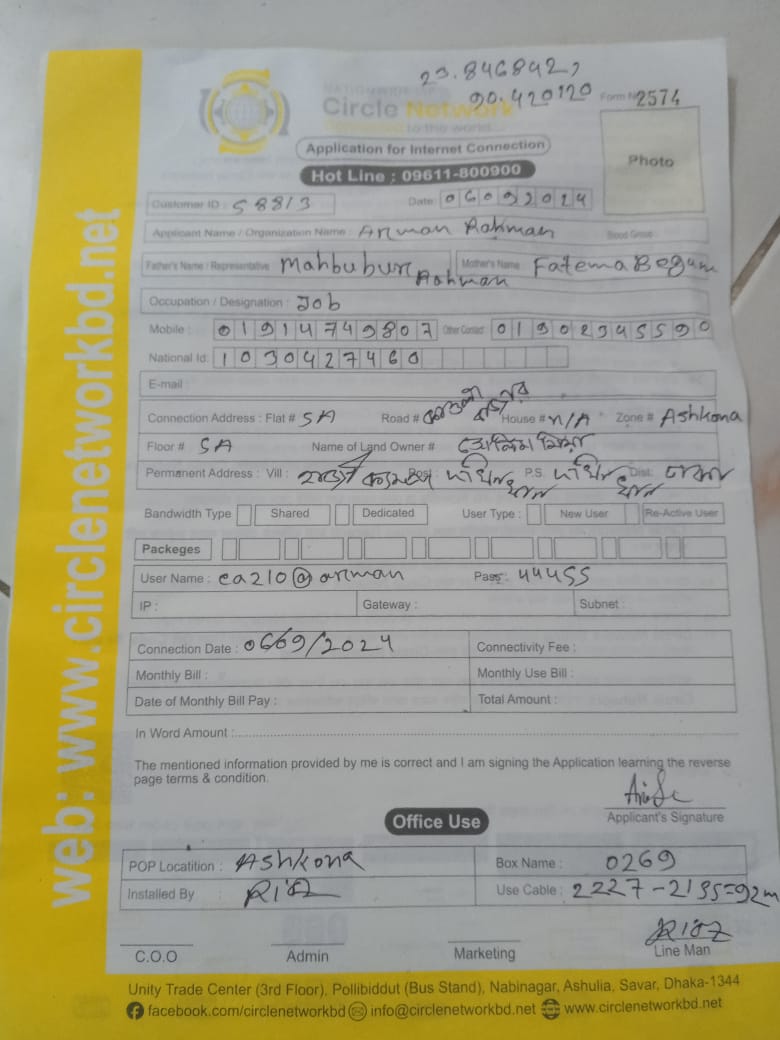 23.846842,
90.420120
Form N 2574
Circle Network
to the world
Application for Internet Connection
Photo
Hot Line : 09611-800900
Customer ID : 58813 Date: 06092024
Applicant Name / Organization Name : Arman Rahman Blood Group :
Father's Name / Representative Mahbubur Rahman Mother's Name Fatema Begum
Occupation / Designation : Job
Mobile : 01914749807 Other Contact : 01902345590
National Id: 1030427460
E-mail :
Connection Address : Flat # 5A Road # House # n/A Zone # Ashkona
Floor # 5A Name of Land Owner #
Permanent Address : Vill : Post : P.S. Dist: ঢাকা
Bandwidth Type Shared Dedicated User Type : New User Re-Active User
Packeges
User Name : ca210@arman Pass: 44455
IP : Gateway : Subnet :
Connection Date : 0609/2024 Connectivity Fee :
Monthly Bill : Monthly Use Bill :
Date of Monthly Bill Pay : Total Amount :
In Word Amount :
The mentioned information provided by me is correct and I am signing the Application learning the reverse
page terms & condition.
Applicant's Signature
Office Use
POP Locatition : Ashkona Box Name : 0269
Installed By : Riaz Use Cable : 2227-2135=92m
Riaz
C.O.O Admin Marketing Line Man
Unity Trade Center (3rd Floor), Pollibiddut (Bus Stand), Nabinagar, Ashulia, Savar, Dhaka-1344
facebook.com/circlenetworkbd info@circlenetworkbd.net www.circlenetworkbd.net
web: www.circlenetworkbd.net